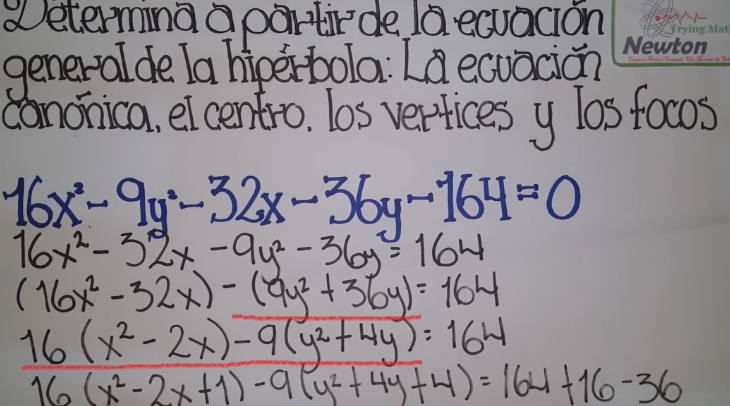 Determina a partir de la ecuación
general de la hipérbola: La ecuación
canónica, el centro, los vertices y los focos
Trying Mat
Newton
16x² - 9y² - 32x - 36y - 164 = 0
16x² - 32x - 9y² - 36y = 164
(16x² - 32x) - (9y² + 36y) = 164
16 (x² - 2x) - 9(y² + 4y) = 164
16 (x² - 2x + 1) - 9(y² + 4y + 4) = 164 + 16 - 36